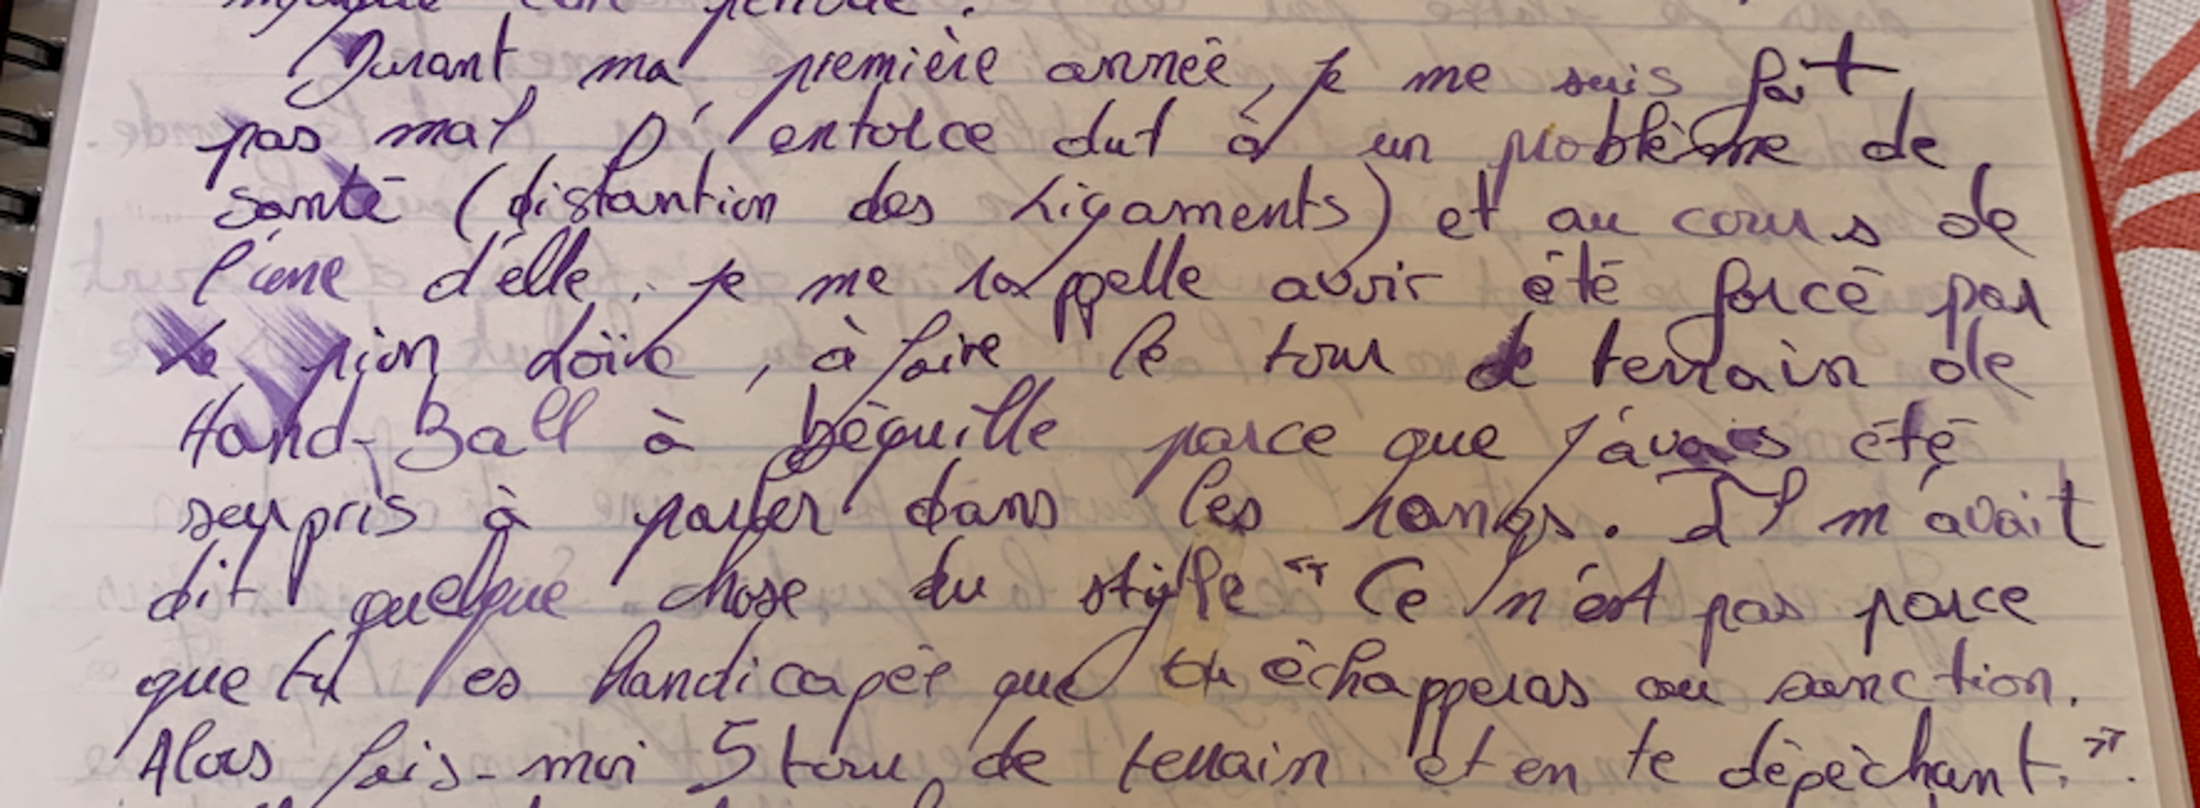 Durant ma première année, je me suis fait
pas mal d'entorce dut à un problème de
santé (distantion des Ligaments) et au cours de
l'une d'elle, je me rappelle avoir été forcé par
pion doïre, à faire le tour de terrain de
Hand-Ball à béquille parce que j'avais été
surpris à parler dans les rangs. Il m'avait
dit quelque chose du style "Ce n'est pas parce
que tu es handicapée que tu échapperas au sanction.
Alors fais-moi 5 tour de terrain et en te dépêchant.".